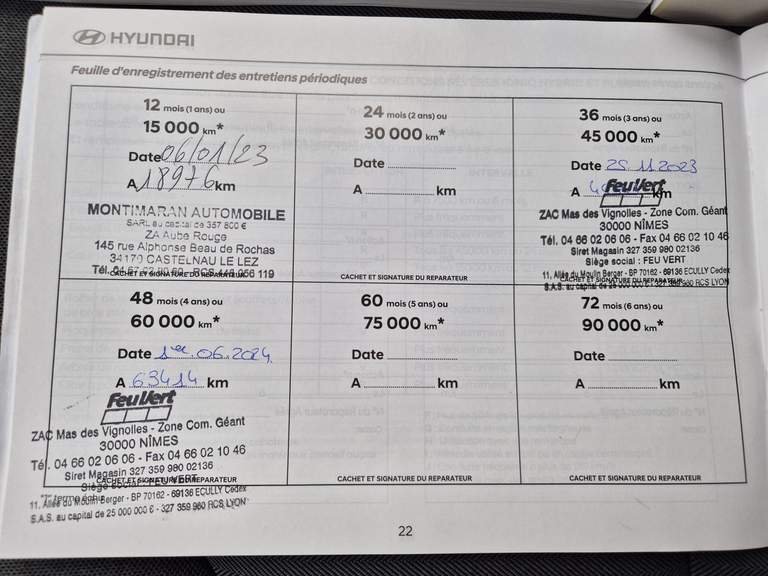 HYUNDAI
Feuille d'enregistrement des entretiens périodiques
12 mois (1 ans) ou
15 000 km*
Date 06/01/23
A 18976 km
MONTIMARAN AUTOMOBILE
SARL au capital de 357 800 €
ZA Aube Rouge
145 rue Alphonse Beau de Rochas
34170 CASTELNAU LE LEZ
Tél. 056 119
CACHET ET SIGNATURE DU REPARATEUR
24 mois (2 ans) ou
30 000 km*
Date
A km
CACHET ET SIGNATURE DU REPARATEUR
36 mois (3 ans) ou
45 000 km*
Date 25.11.2023
A km
FeuVert
ZAC Mas des Vignolles - Zone Com. Géant
30000 NÎMES
Tél. 04 66 02 06 06 - Fax 04 66 02 10 46
Siret Magasin 327 359 980 02136
Siège social : FEU VERT
11, Allée du Moulin Berger - BP 70162 - 69136 ECULLY Cedex
CACHET ET SIGNATURE DU REPARATEUR
S.A.S. au capital de 25 000 000 € - 327 359 980 RCS LYON
48 mois (4 ans) ou
60 000 km*
Date 1er.06.2024
A 63414 km
FeuVert
ZAC Mas des Vignolles - Zone Com. Géant
30000 NÎMES
Tél. 04 66 02 06 06 - Fax 04 66 02 10 46
Siret Magasin 327 359 980 02136
CACHET ET SIGNATURE DU REPARATEUR
Siège social : FEU VERT
*1er terme échu
11, Allée du Moulin Berger - BP 70162 - 69136 ECULLY Cedex
S.A.S. au capital de 25 000 000 € - 327 359 980 RCS LYON
60 mois (5 ans) ou
75 000 km*
Date
A km
CACHET ET SIGNATURE DU REPARATEUR
72 mois (6 ans) ou
90 000 km*
Date
A km
CACHET ET SIGNATURE DU REPARATEUR
22